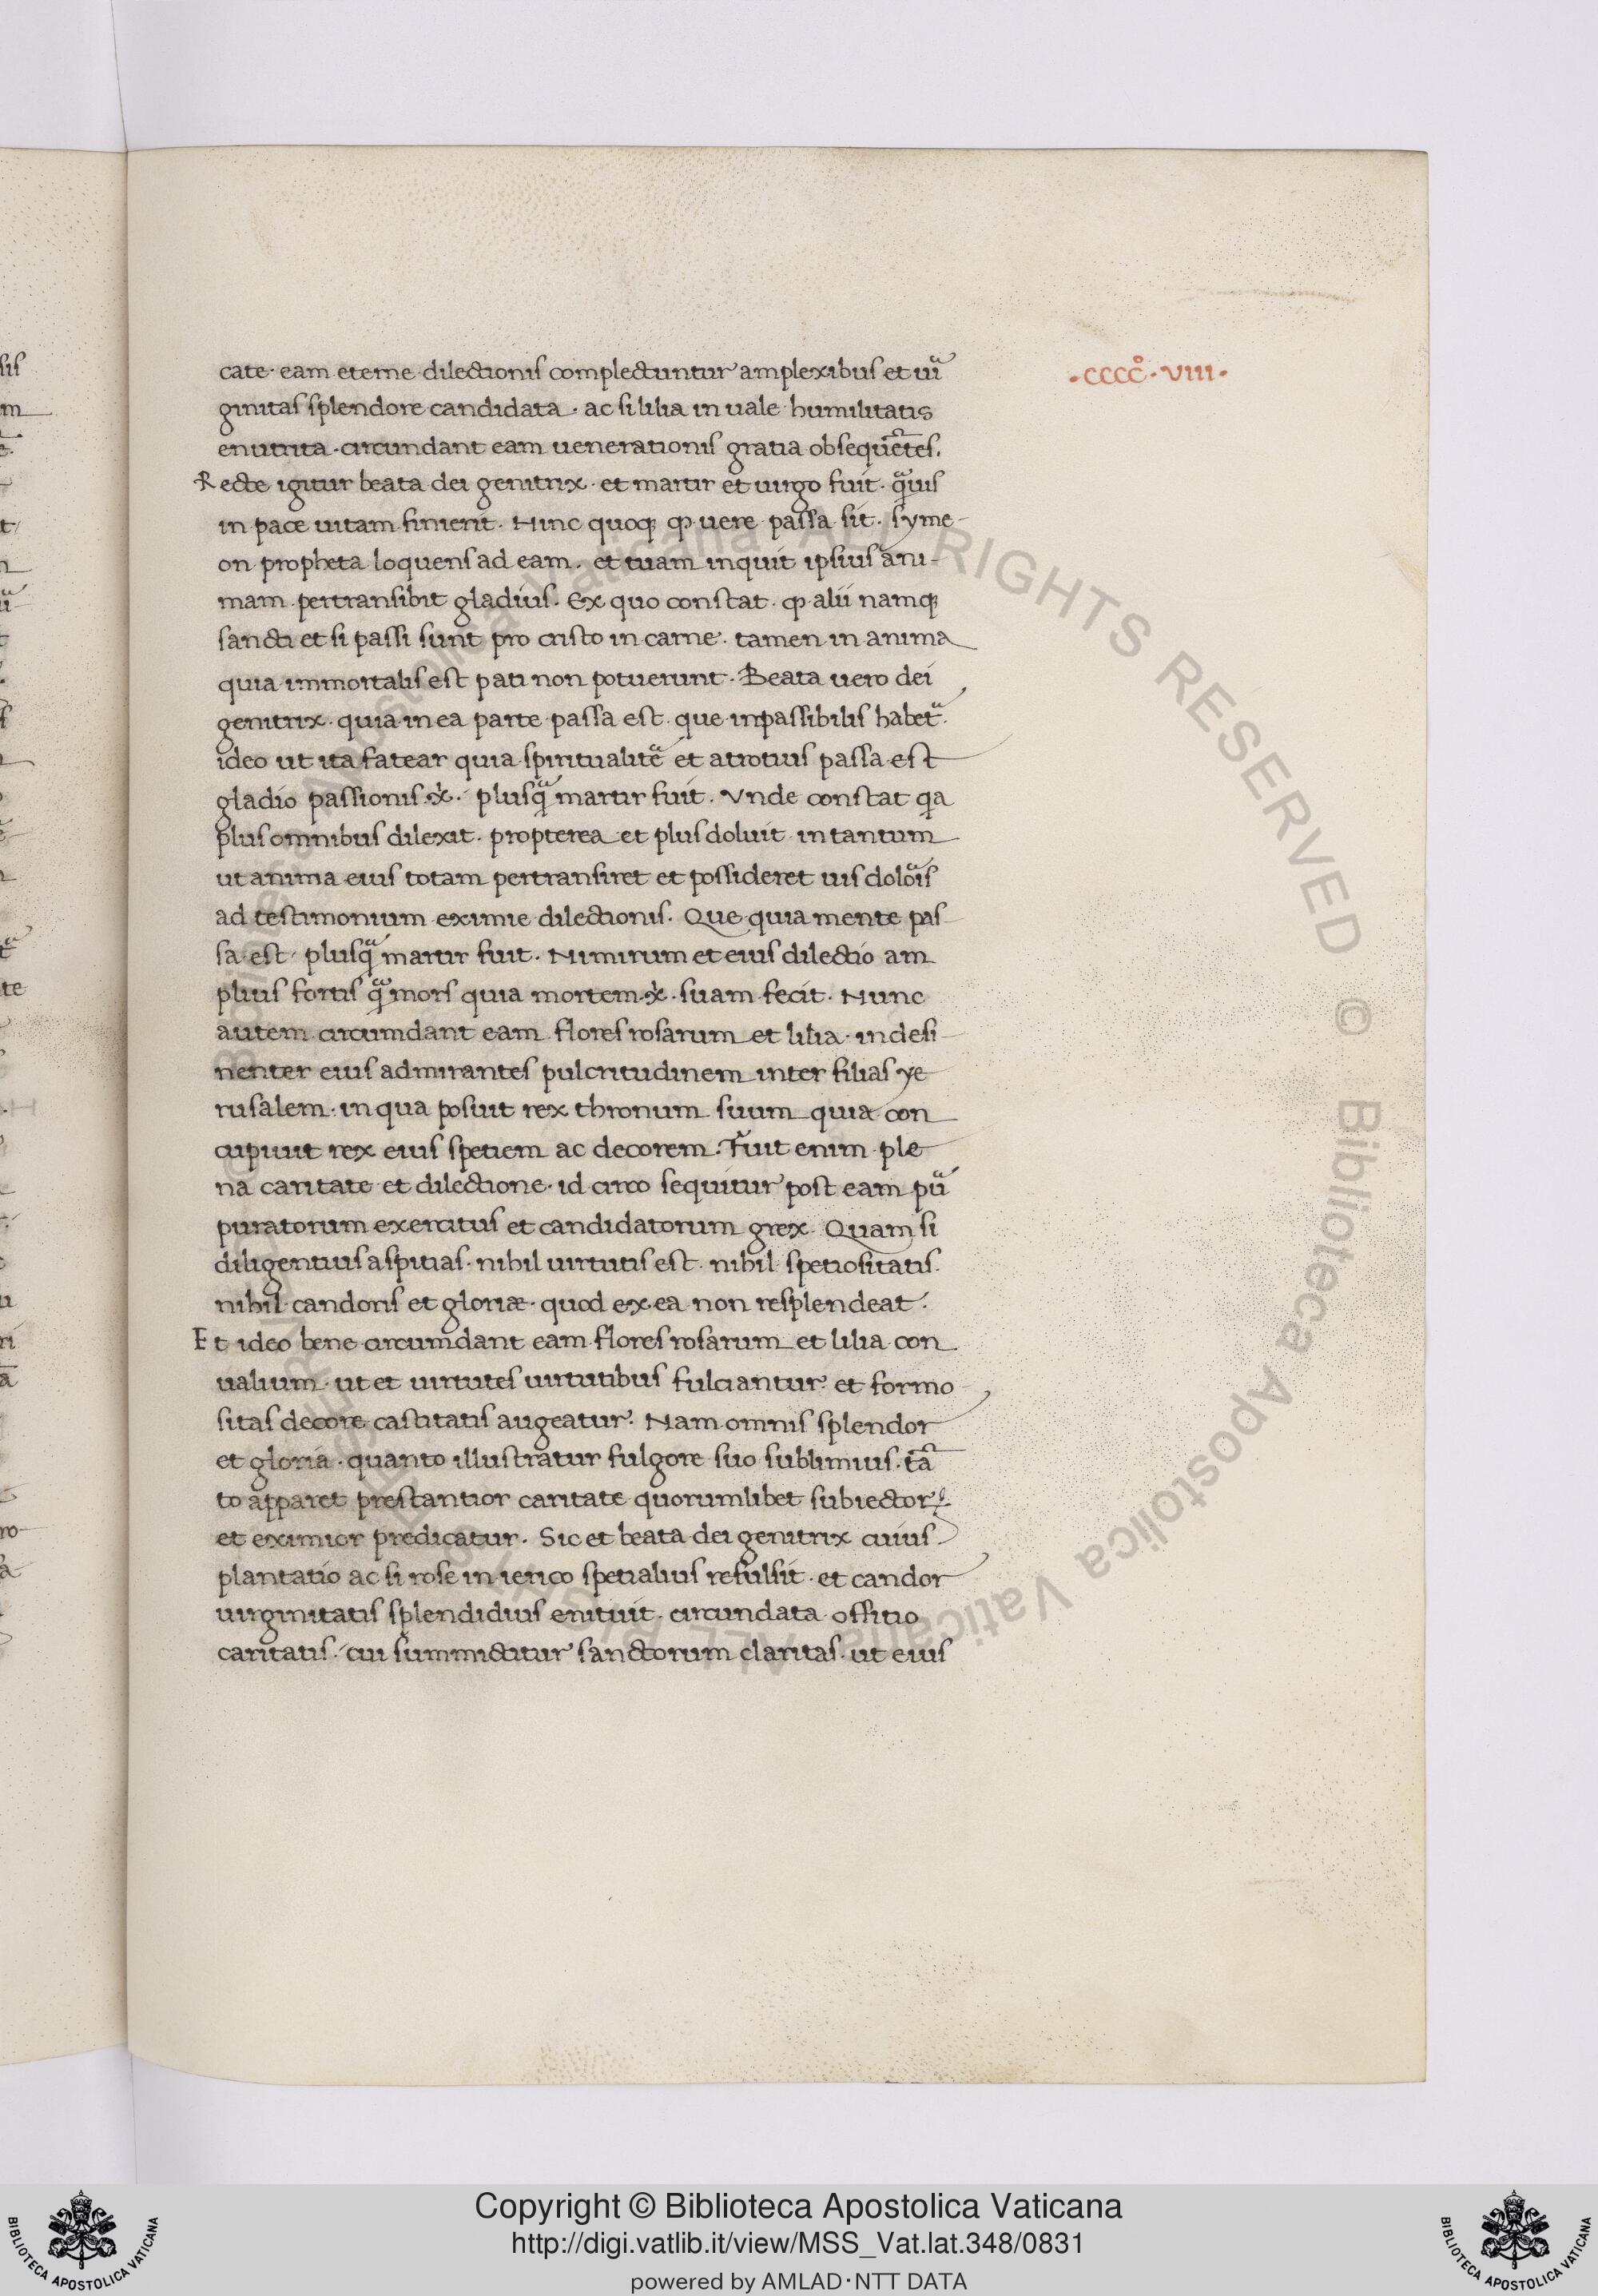 ·CCCC̊·VIII·
cate· eam eterne dilectionis complectuntur amplexibus et uiͣ
ginitas splendore candidata · ac si lilia in uale humilitatis
enutrita · circundant eam uenerationis gratia obsequẽtes.
Recte igitur beata dei genitrix · et martir et uirgo fuit · qͣuis
in pace uitam finierit. Nunc quoqꝫ ꝙ uere passa sit. syme-
on propheta loquens ad eam. et tuam inquit ipsius ani-
mam pertransibit gladius. Ex quo constat · ꝙ alii namqꝫ
sancti et si passi sunt pro cristo in carne · tamen in anima
quia immortalis est pati non potuerunt. Beata uero dei
genitrix · quia in ea parte passa est · que inpassibilis habetᷓ.
ideo ut ita fatear quia spiritualitᷓe et atrotius passa est
gladio passionis ·x̍p· plusqͣ martir fuit. Vnde constat qa
plus omnibus dilexit · propterea et plus doluit in tantum
ut anima eius totam pertransiret et possideret uis doloᷓis
ad testimonium eximie dilectionis. Que quia mente pas
sa est plusqͣ martir fuit. Nimirum et eius dilectio am
plius fortis qͣ mors quia mortem ·x̍p· suam fecit. Nunc
autem circumdant eam flores rosarum et lilia · indesi-
nenter eius admirantes pulcritudinem inter filias ye
rusalem · in qua posuit rex thronum suum quia con
cupiuit rex eius spetiem ac decorem. Fuit enim ple
na caritate et dilectione · id circo sequitur post eam puͣ
puratorum exercitus et candidatorum grex. Quam si
diligentius aspitias · nihil uirtutis est · nihil spetiositatis.
nihil candoris et gloriæ · quod ex ea non resplendeat.
Et ideo bene circumdant eam flores rosarum et lilia con
ualium · ut et uirtutes uirtutibus fulciantur · et formo
sitas decore castitatis augeatur. Nam omnis splendor
et gloria · quanto illustratur fulgore suo sublimius · tã
to apparet prestantior caritate quorumlibet subiectoꝝ
et eximior predicatur. Sic et beata dei genitrix cuius
plantatio ac si rose in ierico spetialius refulsit · et candor
uirginitatis splendidius enituit · circundata offitio
caritatis · cui summictitur sanctorum claritas · ut eius
Copyright © Biblioteca Apostolica Vaticana
http://digi.vatlib.it/view/MSS_Vat.lat.348/0831
powered by AMLAD·NTT DATA